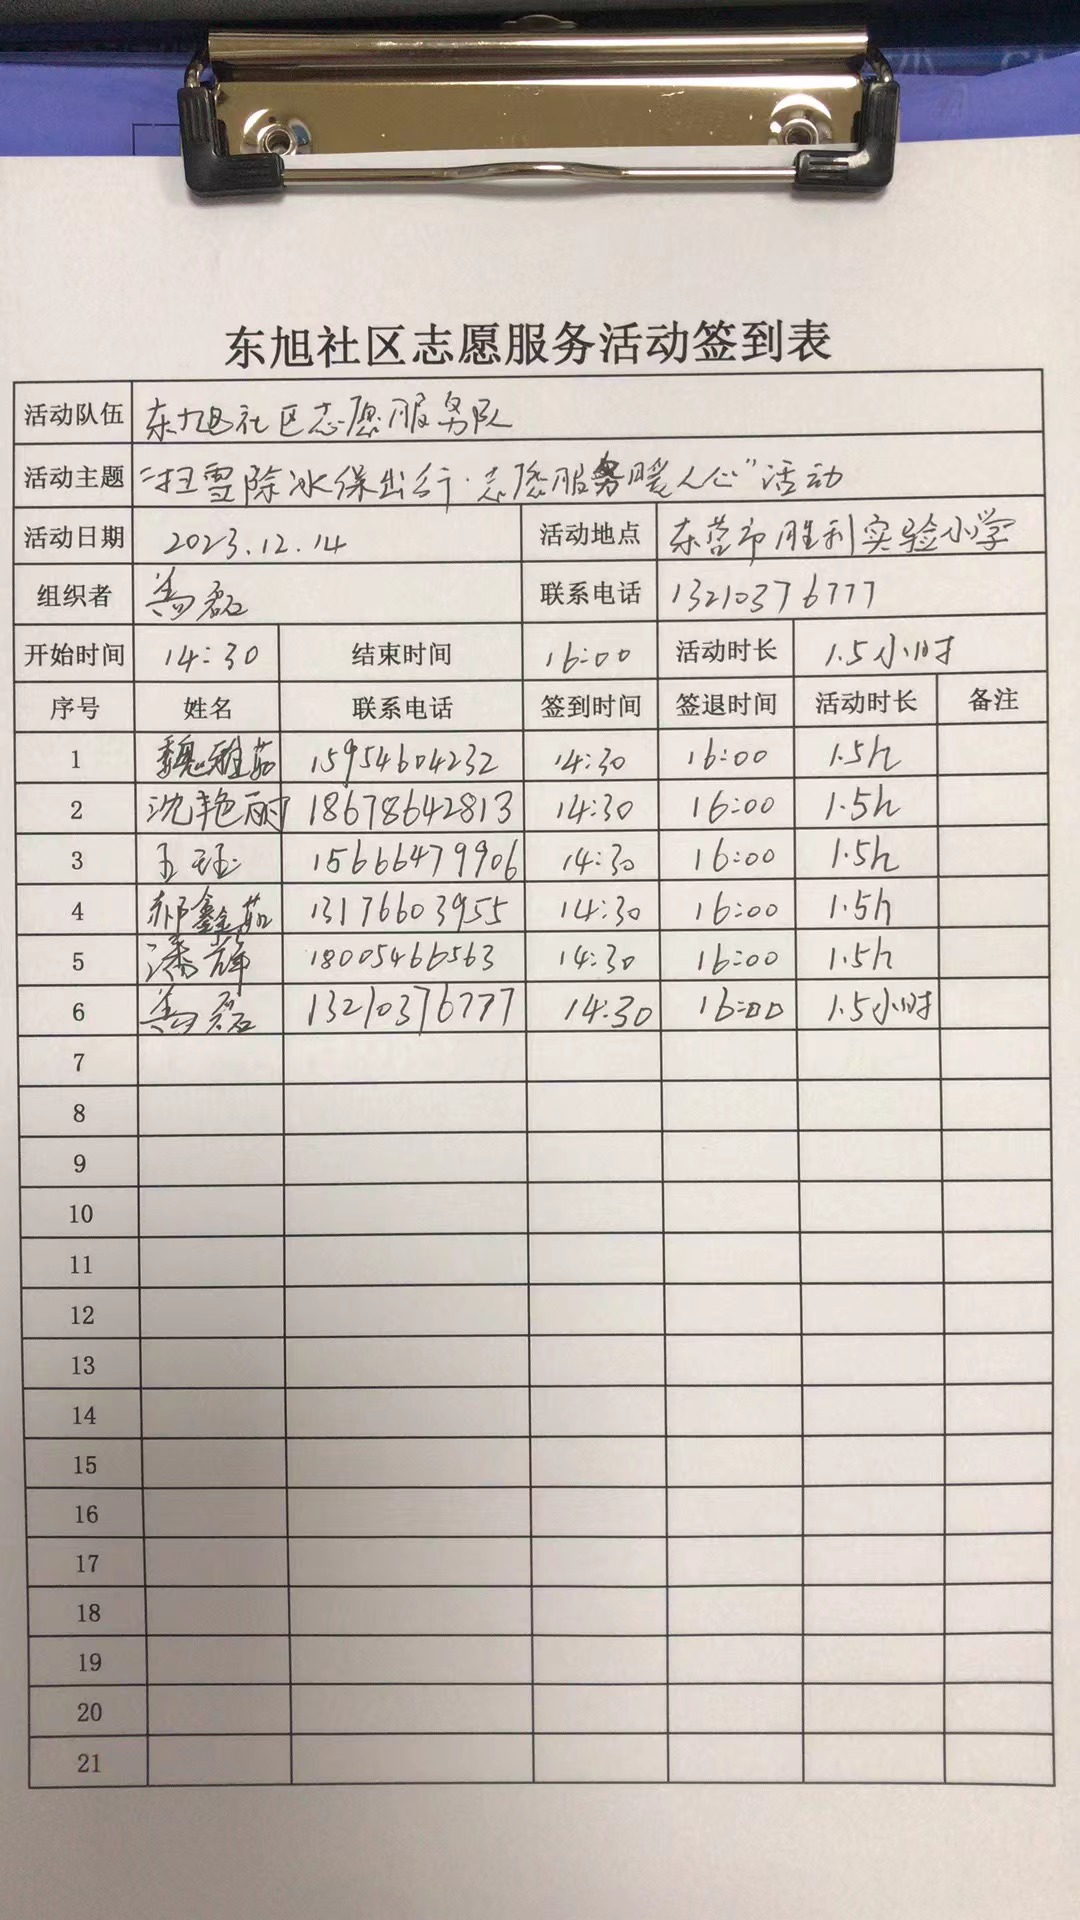 东旭社区志愿服务活动签到表
活动队伍 东旭社区志愿服务队
活动主题 “扫雪除冰保出行·志愿服务暖人心”活动
活动日期 2023.12.14 活动地点 东营市胜利实验小学
组织者 联系电话 13210376777
开始时间 14:30 结束时间 16:00 活动时长 1.5小时
序号 姓名 联系电话 签到时间 签退时间 活动时长 备注
1 魏雅茹 15954604232 14:30 16:00 1.5h
2 沈艳丽 18678642813 14:30 16:00 1.5h
3 王珏 15666479906 14:30 16:00 1.5h
4 郝鑫茹 13176603955 14:30 16:00 1.5h
5 潘辉 18005466563 14:30 16:00 1.5h
6 13210376777 14:30 16:00 1.5小时
7
8
9
10
11
12
13
14
15
16
17
18
19
20
21